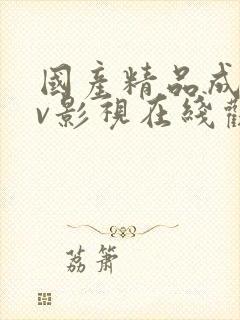 國產精品成
v影視在綫觀
荔簫